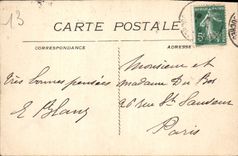 13
CARTE POSTALE
CORRESPONDANCE
ADRESSE
Très bonnes pensées
E Blanz
Monsieur et
madame Du Bos
26 rue St Sauveur
Paris